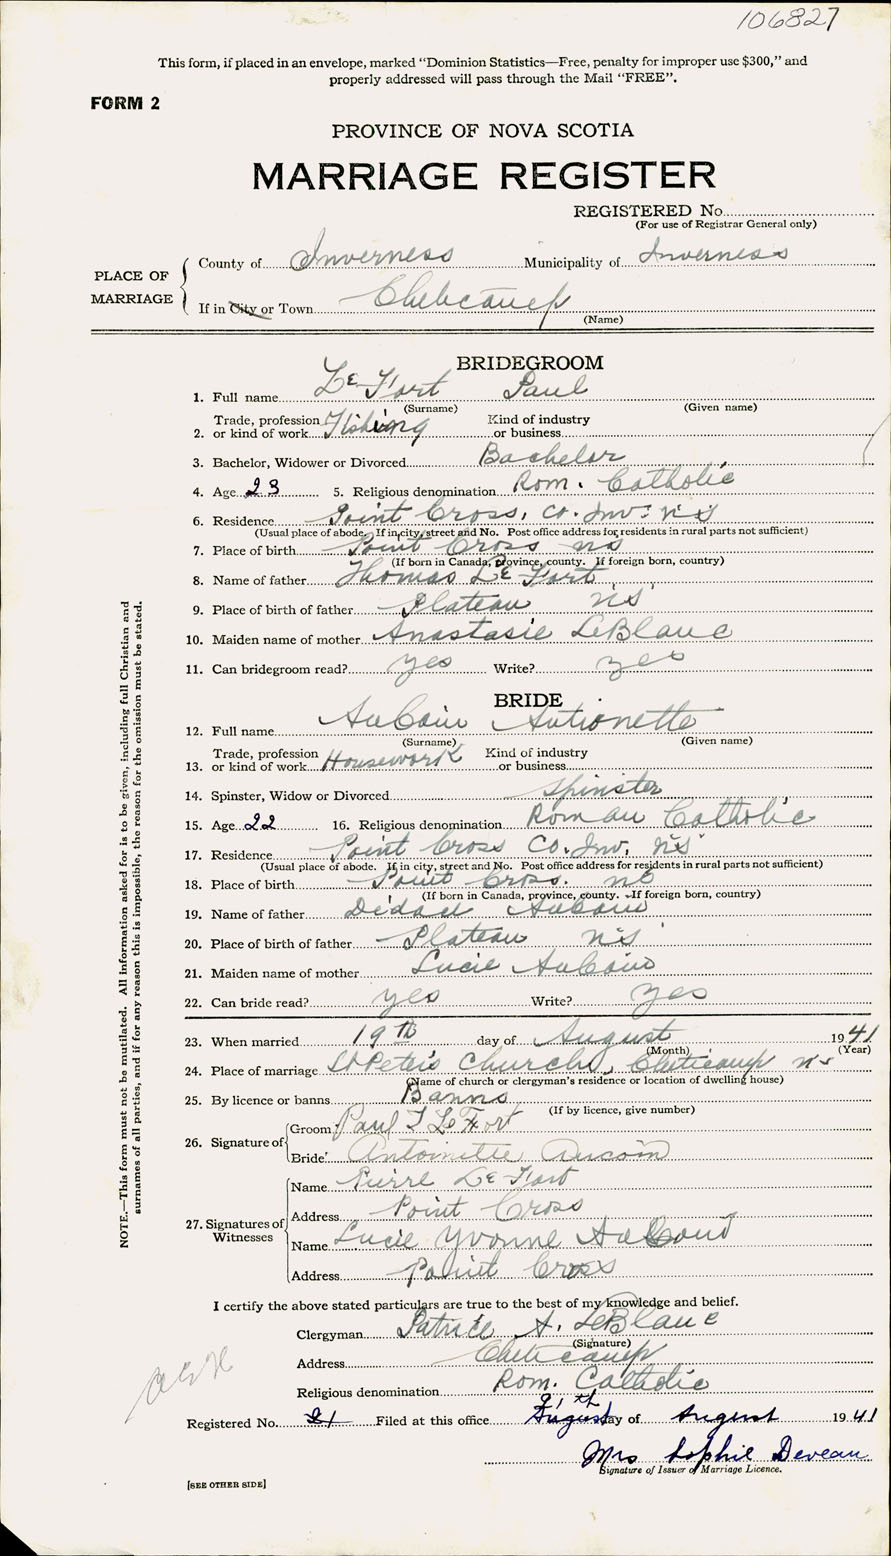 106827
This form, if placed in an envelope, marked “Dominion Statistics—Free, penalty for improper use $300,” and
properly addressed will pass through the Mail “FREE”.
FORM 2
PROVINCE OF NOVA SCOTIA
MARRIAGE REGISTER
REGISTERED No.
(For use of Registrar General only)
PLACE OF MARRIAGE
County of Inverness Municipality of Inverness
If in City or Town Cheticamp
(Name)
BRIDEGROOM
1. Full name Le Fort Paul
(Surname) (Given name)
2. Trade, profession or kind of work Fishing Kind of industry or business
3. Bachelor, Widower or Divorced Bachelor
4. Age 23 5. Religious denomination Rom. Catholic
6. Residence Point Cross, Co. Inv. N.S
(Usual place of abode. If in city, street and No. Post office address for residents in rural parts not sufficient)
7. Place of birth Point Cross NS
(If born in Canada, province, county. If foreign born, country)
8. Name of father Thomas Le Fort
9. Place of birth of father Plateau NS
10. Maiden name of mother Anastasie LeBlanc
11. Can bridegroom read? yes Write? yes
BRIDE
12. Full name AuCoin Antionette
(Surname) (Given name)
13. Trade, profession or kind of work Housework Kind of industry or business
14. Spinster, Widow or Divorced Spinster
15. Age 22 16. Religious denomination Roman Catholic
17. Residence Point Cross Co. Inv. NS
(Usual place of abode. If in city, street and No. Post office address for residents in rural parts not sufficient)
18. Place of birth Point Cross. NS
(If born in Canada, province, county. If foreign born, country)
19. Name of father AuCoin
20. Place of birth of father Plateau NS
21. Maiden name of mother Lucie AuCoin
22. Can bride read? yes Write? yes
23. When married 19th day of August 1941
(Month) (Year)
24. Place of marriage St Peter's Church, Cheticamp NS
(Name of church or clergyman's residence or location of dwelling house)
25. By licence or banns Banns
(If by licence, give number)
26. Signature of
Groom Paul T LeFort
Bride Antoinette Aucoin
27. Signatures of Witnesses
Name Pierre Le Fort
Address Point Cross
Name Lucie Yvonne AuCoin
Address Point Cross
I certify the above stated particulars are true to the best of my knowledge and belief.
Clergyman Patrice A. LeBlanc
(Signature)
Address Cheticamp
Religious denomination Rom. Catholic
Registered No. 21 Filed at this office August 21th day of August 1941
Mrs Sophie Deveau
Signature of Issuer of Marriage Licence.
[SEE OTHER SIDE]
NOTE.—This form must not be mutilated. All information asked for is to be given, including full Christian and
surnames of all parties, and if for any reason this is impossible, the reason for the omission must be stated.